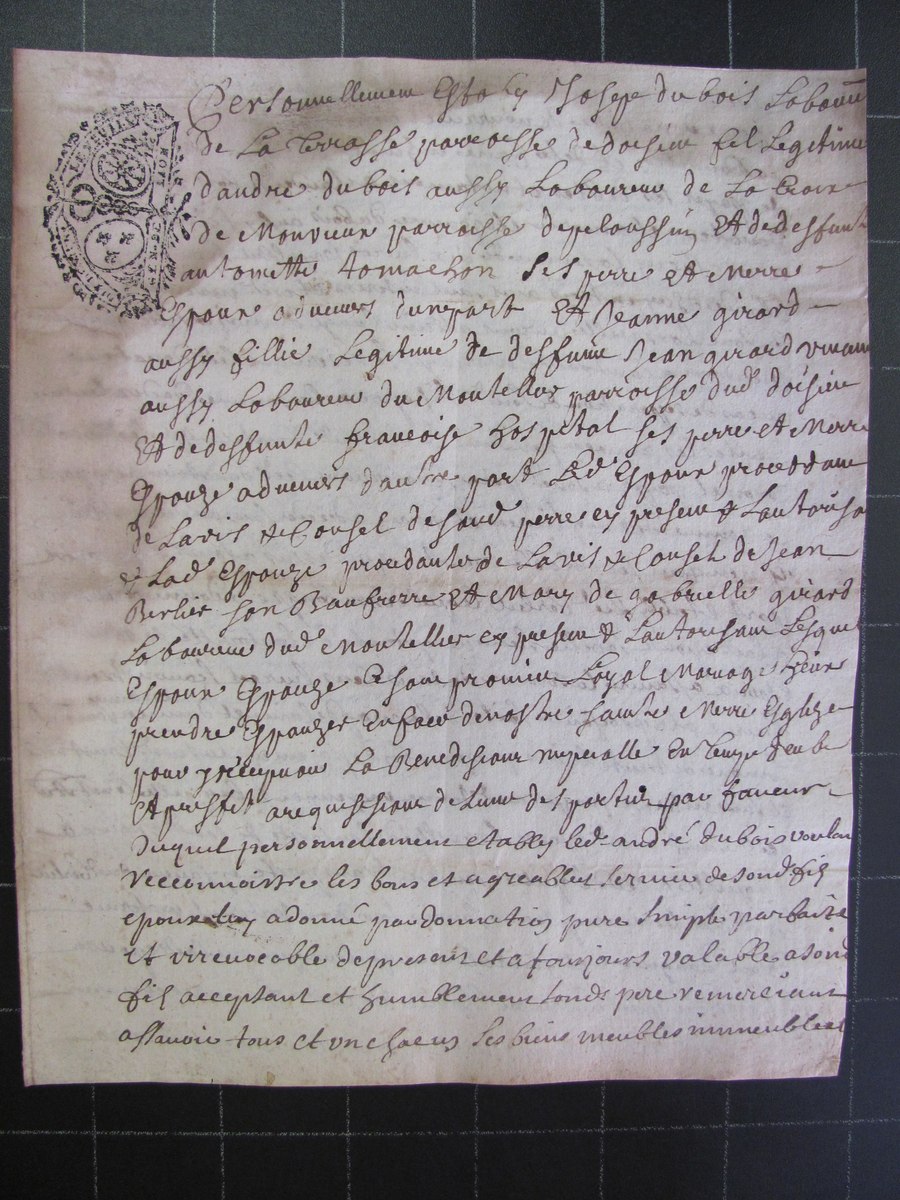 Personnellement Estably Joseph dubois Laboureur
de La terrasse parroisse de doisieu fil Legitime
d'andre du bois aussy Laboureur de La
de Monvieux parroisse de peloussin Et de deffunte
antoinette tomachon ses perre Et Merre
Espoux advenirs dunepart Et Jeanne girard
aussy fillie Legitime de deffunt Jean girard vivant
aussy Laboureur du Montellier parroisse dud doisieu
Et de deffunte francoise hospital ses perre et Merre
Espouze advenirs d'autre part Led Espoux procedant
de Lavis & Consel de sond perre ey present & Lautorisant
& Lad Espouze procedante de Lavis & Consel de Jean
Berlier son Baufrerre Et Mary de gabrielle girard
Laboureur dud Montellier ey present & Lautorisant Lesquel
Espoux Espouze promis Loyal Mariage
prendre Espouzer En face de nostre sainte Merre Esglize
pour La Benedision nupcialle En temps deub
Et preffit a requisesion de Lune des parties par faveur
Duquel personnellement establey led andré dubois voulant
reconnoistre les bons et agreables services de sond fil
epoux a donné par donnation pure simple parfaite
et irrevocable de present et a toujours valable a sond
fil acceptant et humblement sond pere remerciant
assavoir tous et un chacus ses biens meubles immeubles